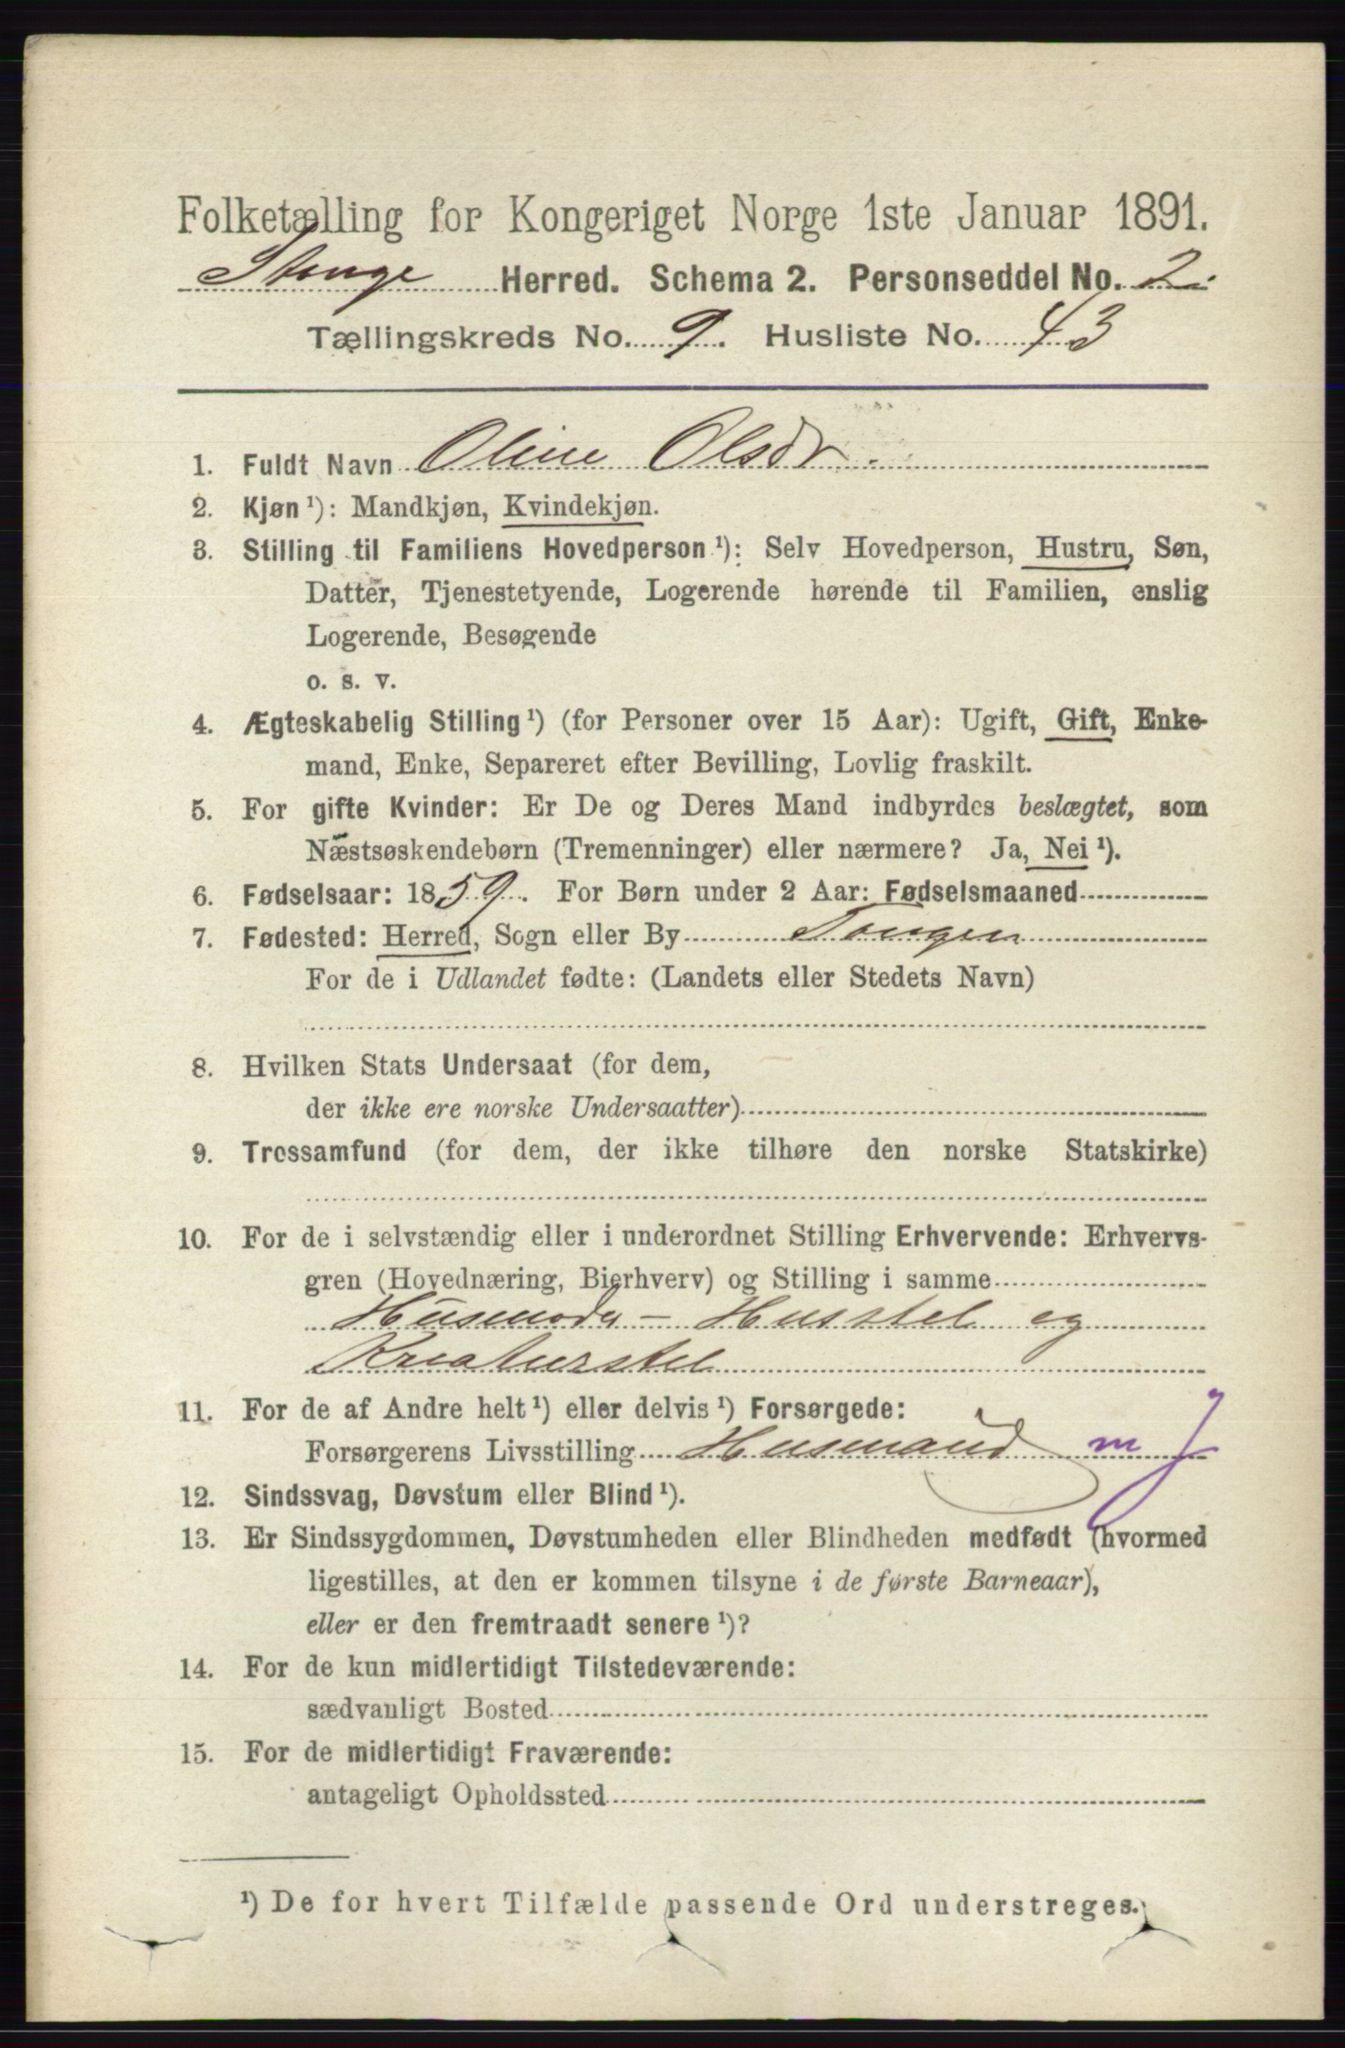 Folketælling for Kongeriget Norge 1ste Januar 1891.
Stange Herred. Schema 2. Personseddel No. 2.
Tællingskreds No. 9. Husliste No. 43
1. Fuldt Navn Oline Olsdr.
2. Kjøn ¹): Mandkjøn, Kvindekjøn.
3. Stilling til Familiens Hovedperson ¹): Selv Hovedperson, Hustru, Søn,
Datter, Tjenestetyende, Logerende hørende til Familien, enslig
Logerende, Besøgende
o. s. v.
4. Ægteskabelig Stilling ¹) (for Personer over 15 Aar): Ugift, Gift, Enke-
mand, Enke, Separeret efter Bevilling, Lovlig fraskilt.
5. For gifte Kvinder: Er De og Deres Mand indbyrdes beslægtet, som
Næstsøskendebørn (Tremenninger) eller nærmere? Ja, Nei ¹).
6. Fødselsaar: 1859. For Børn under 2 Aar: Fødselsmaaned
7. Fødested: Herred, Sogn eller By Tangen
For de i Udlandet fødte: (Landets eller Stedets Navn)
8. Hvilken Stats Undersaat (for dem,
der ikke ere norske Undersaatter)
9. Trossamfund (for dem, der ikke tilhøre den norske Statskirke)
10. For de i selvstændig eller i underordnet Stilling Erhvervende: Erhvervs-
gren (Hovednæring, Bierhverv) og Stilling i samme
Husmoder - Husstel og
Kreaturstel
11. For de af Andre helt ¹) eller delvis ¹) Forsørgede:
Forsørgerens Livsstilling Husmand m J
12. Sindssvag, Døvstum eller Blind ¹).
13. Er Sindssygdommen, Døvstumheden eller Blindheden medfødt (hvormed
ligestilles, at den er kommen tilsyne i de første Barneaar),
eller er den fremtraadt senere ¹)?
14. For de kun midlertidigt Tilstedeværende:
sædvanligt Bosted
15. For de midlertidigt Fraværende:
antageligt Opholdssted
¹) De for hvert Tilfælde passende Ord understreges.